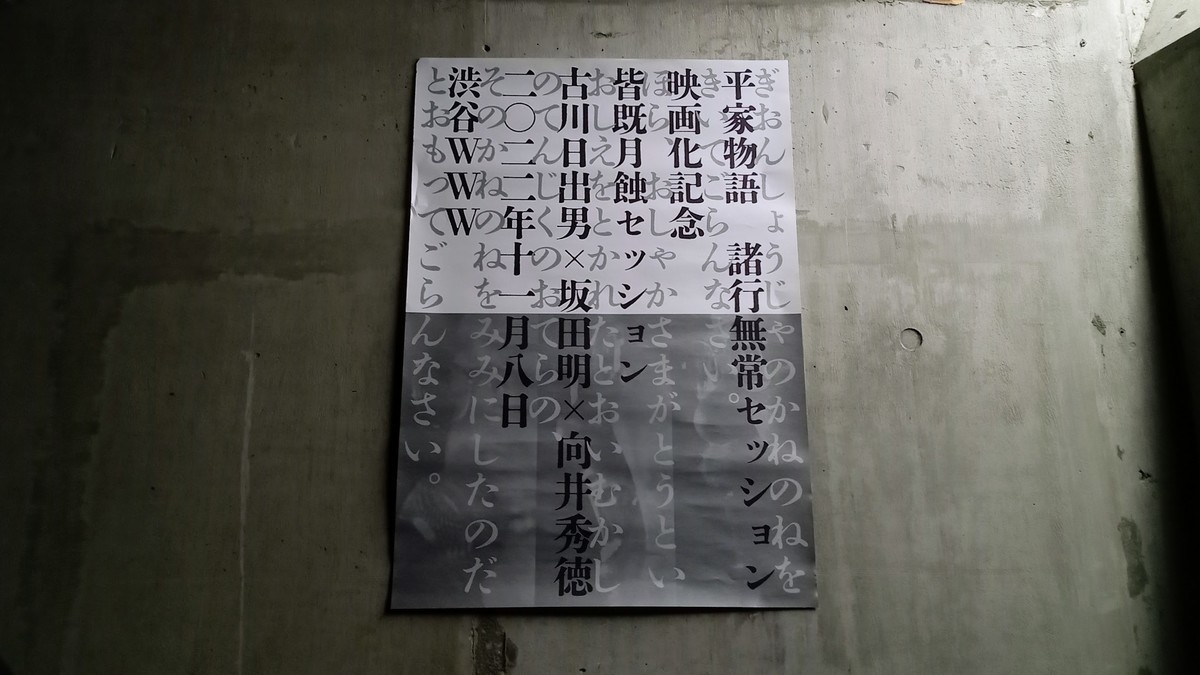 平家物語 諸行無常セッション
映画化記念
皆既月蝕セッション
古川日出男×坂田明×向井秀徳
二〇二二年十一月八日
渋谷WWW
ぎおんしょうじゃのかねのねを
きいてごらんなさい。
ほら、おしゃかさまがとうとい
おしえをとかれたとおいむかし
のてんじくのおてらの、
そのかねのねをみみにしたのだ
とおもってごらんなさい。